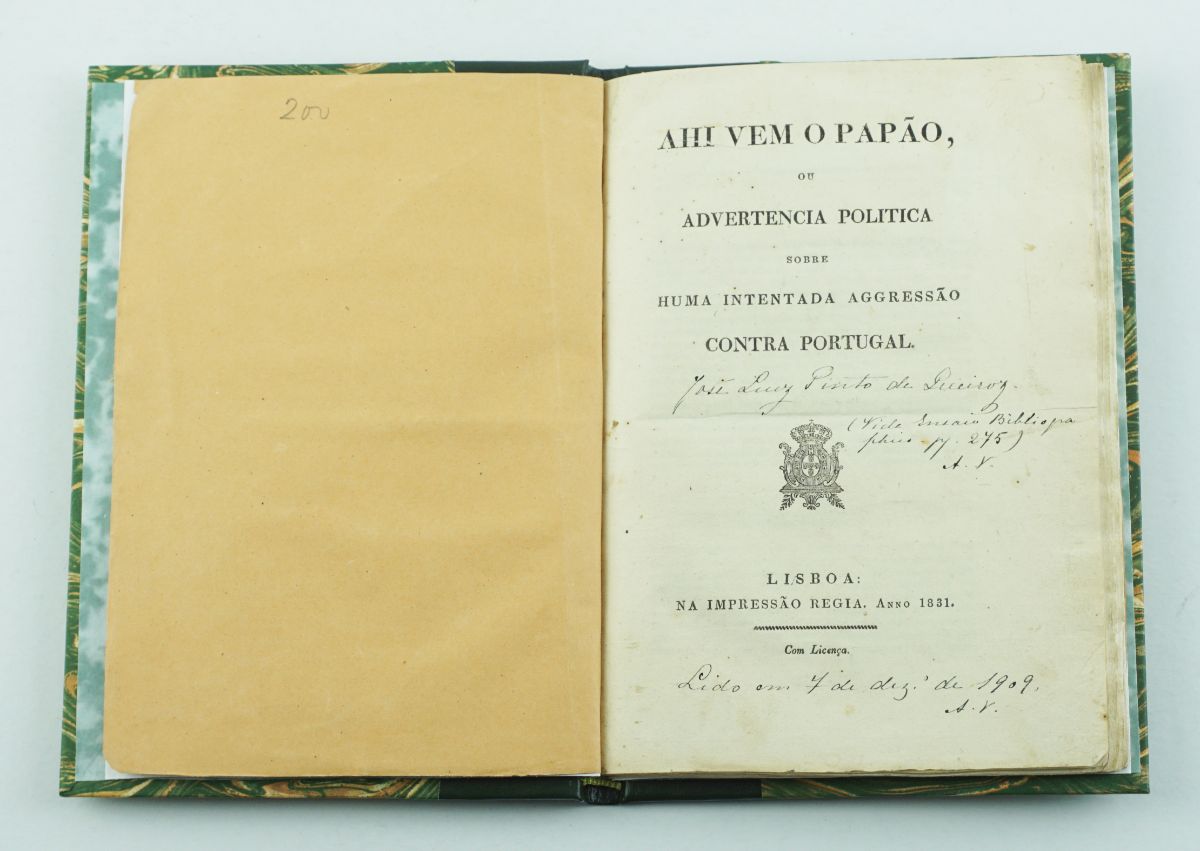 200
AHI VEM O PAPÃO,
OU
ADVERTENCIA POLITICA
SOBRE
HUMA INTENTADA AGGRESSÃO
CONTRA PORTUGAL.
José Luiz Pinto de Queiroz.
(Vide Ensaio Bibliogra
phico pg. 275)
A. V.
LISBOA:
NA IMPRESSÃO REGIA. ANNO 1831.
Com Licença.
Lido em 7 de dez.º de 1909.
A. V.